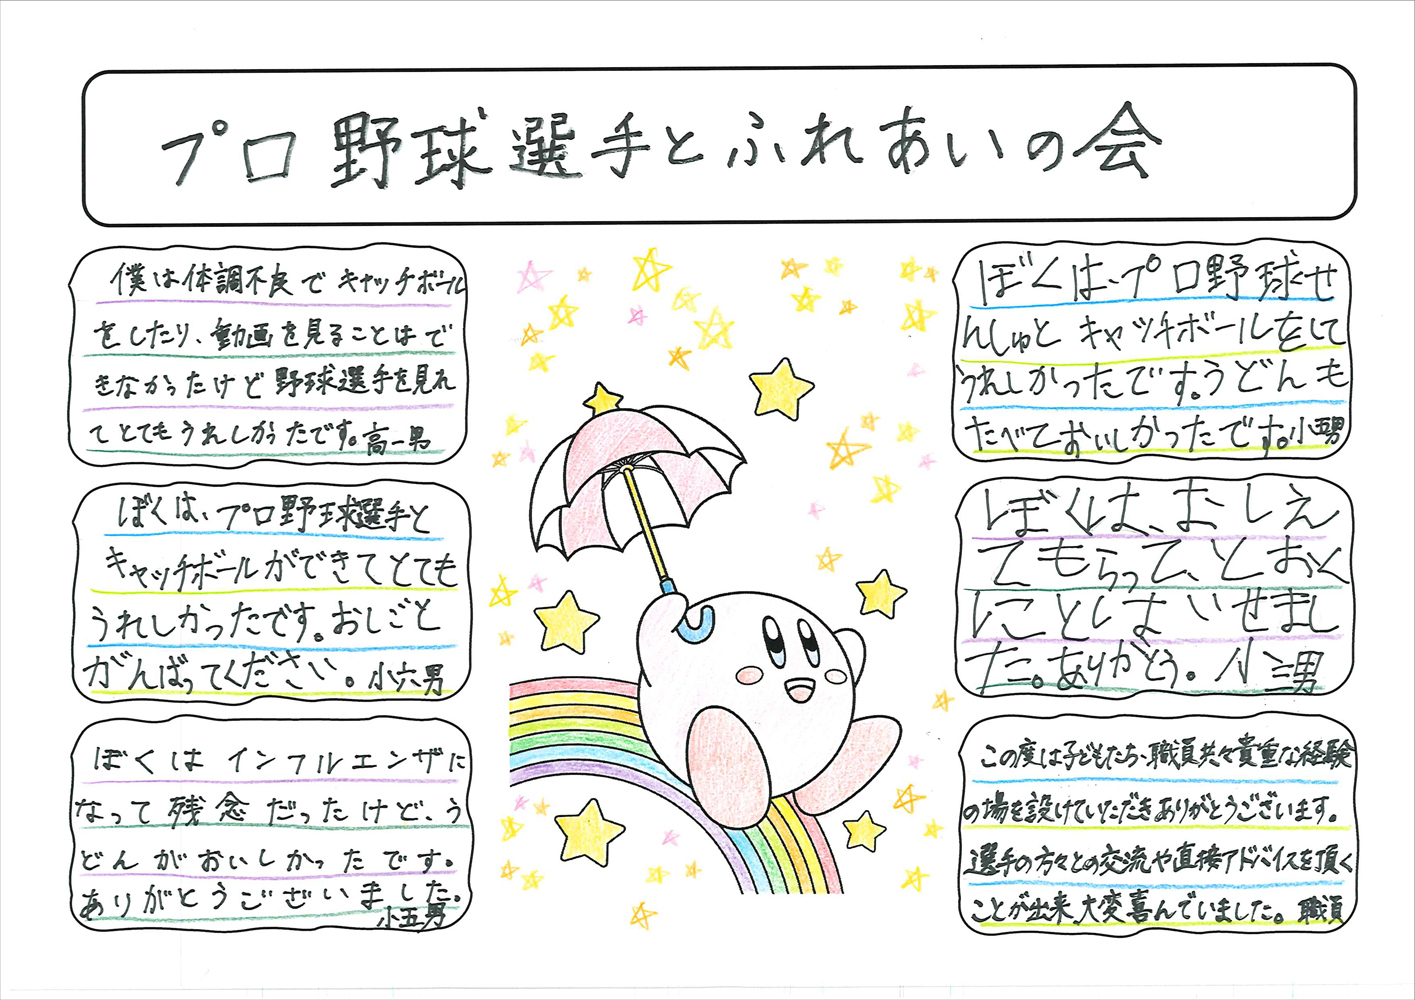 プロ野球選手とふれあいの会
僕は体調不良でキャッチボール
をしたり、動画を見ることはで
きなかったけど野球選手を見れ
てとてもうれしかったです。高一男
ぼくは、プロ野球選手と
キャッチボールができてとても
うれしかったです。おしごと
がんばってください。小六男
ぼくはインフルエンザに
なって残念だったけど、う
どんがおいしかったです。
ありがとうございました。
小五男
ぼくは、プロ野球せ
んしゅとキャッチボールをして
うれしかったです。うどんも
たべておいしかったです。小五男
ぼくは、おしえ
てもらって、とおく
にことしはいせまし
た。ありがとう。小三男
この度は子どもたち、職員共々貴重な経験
の場を設けていただきありがとうございます。
選手の方々との交流や直接アドバイスを頂く
ことが出来大変喜んでいました。職員